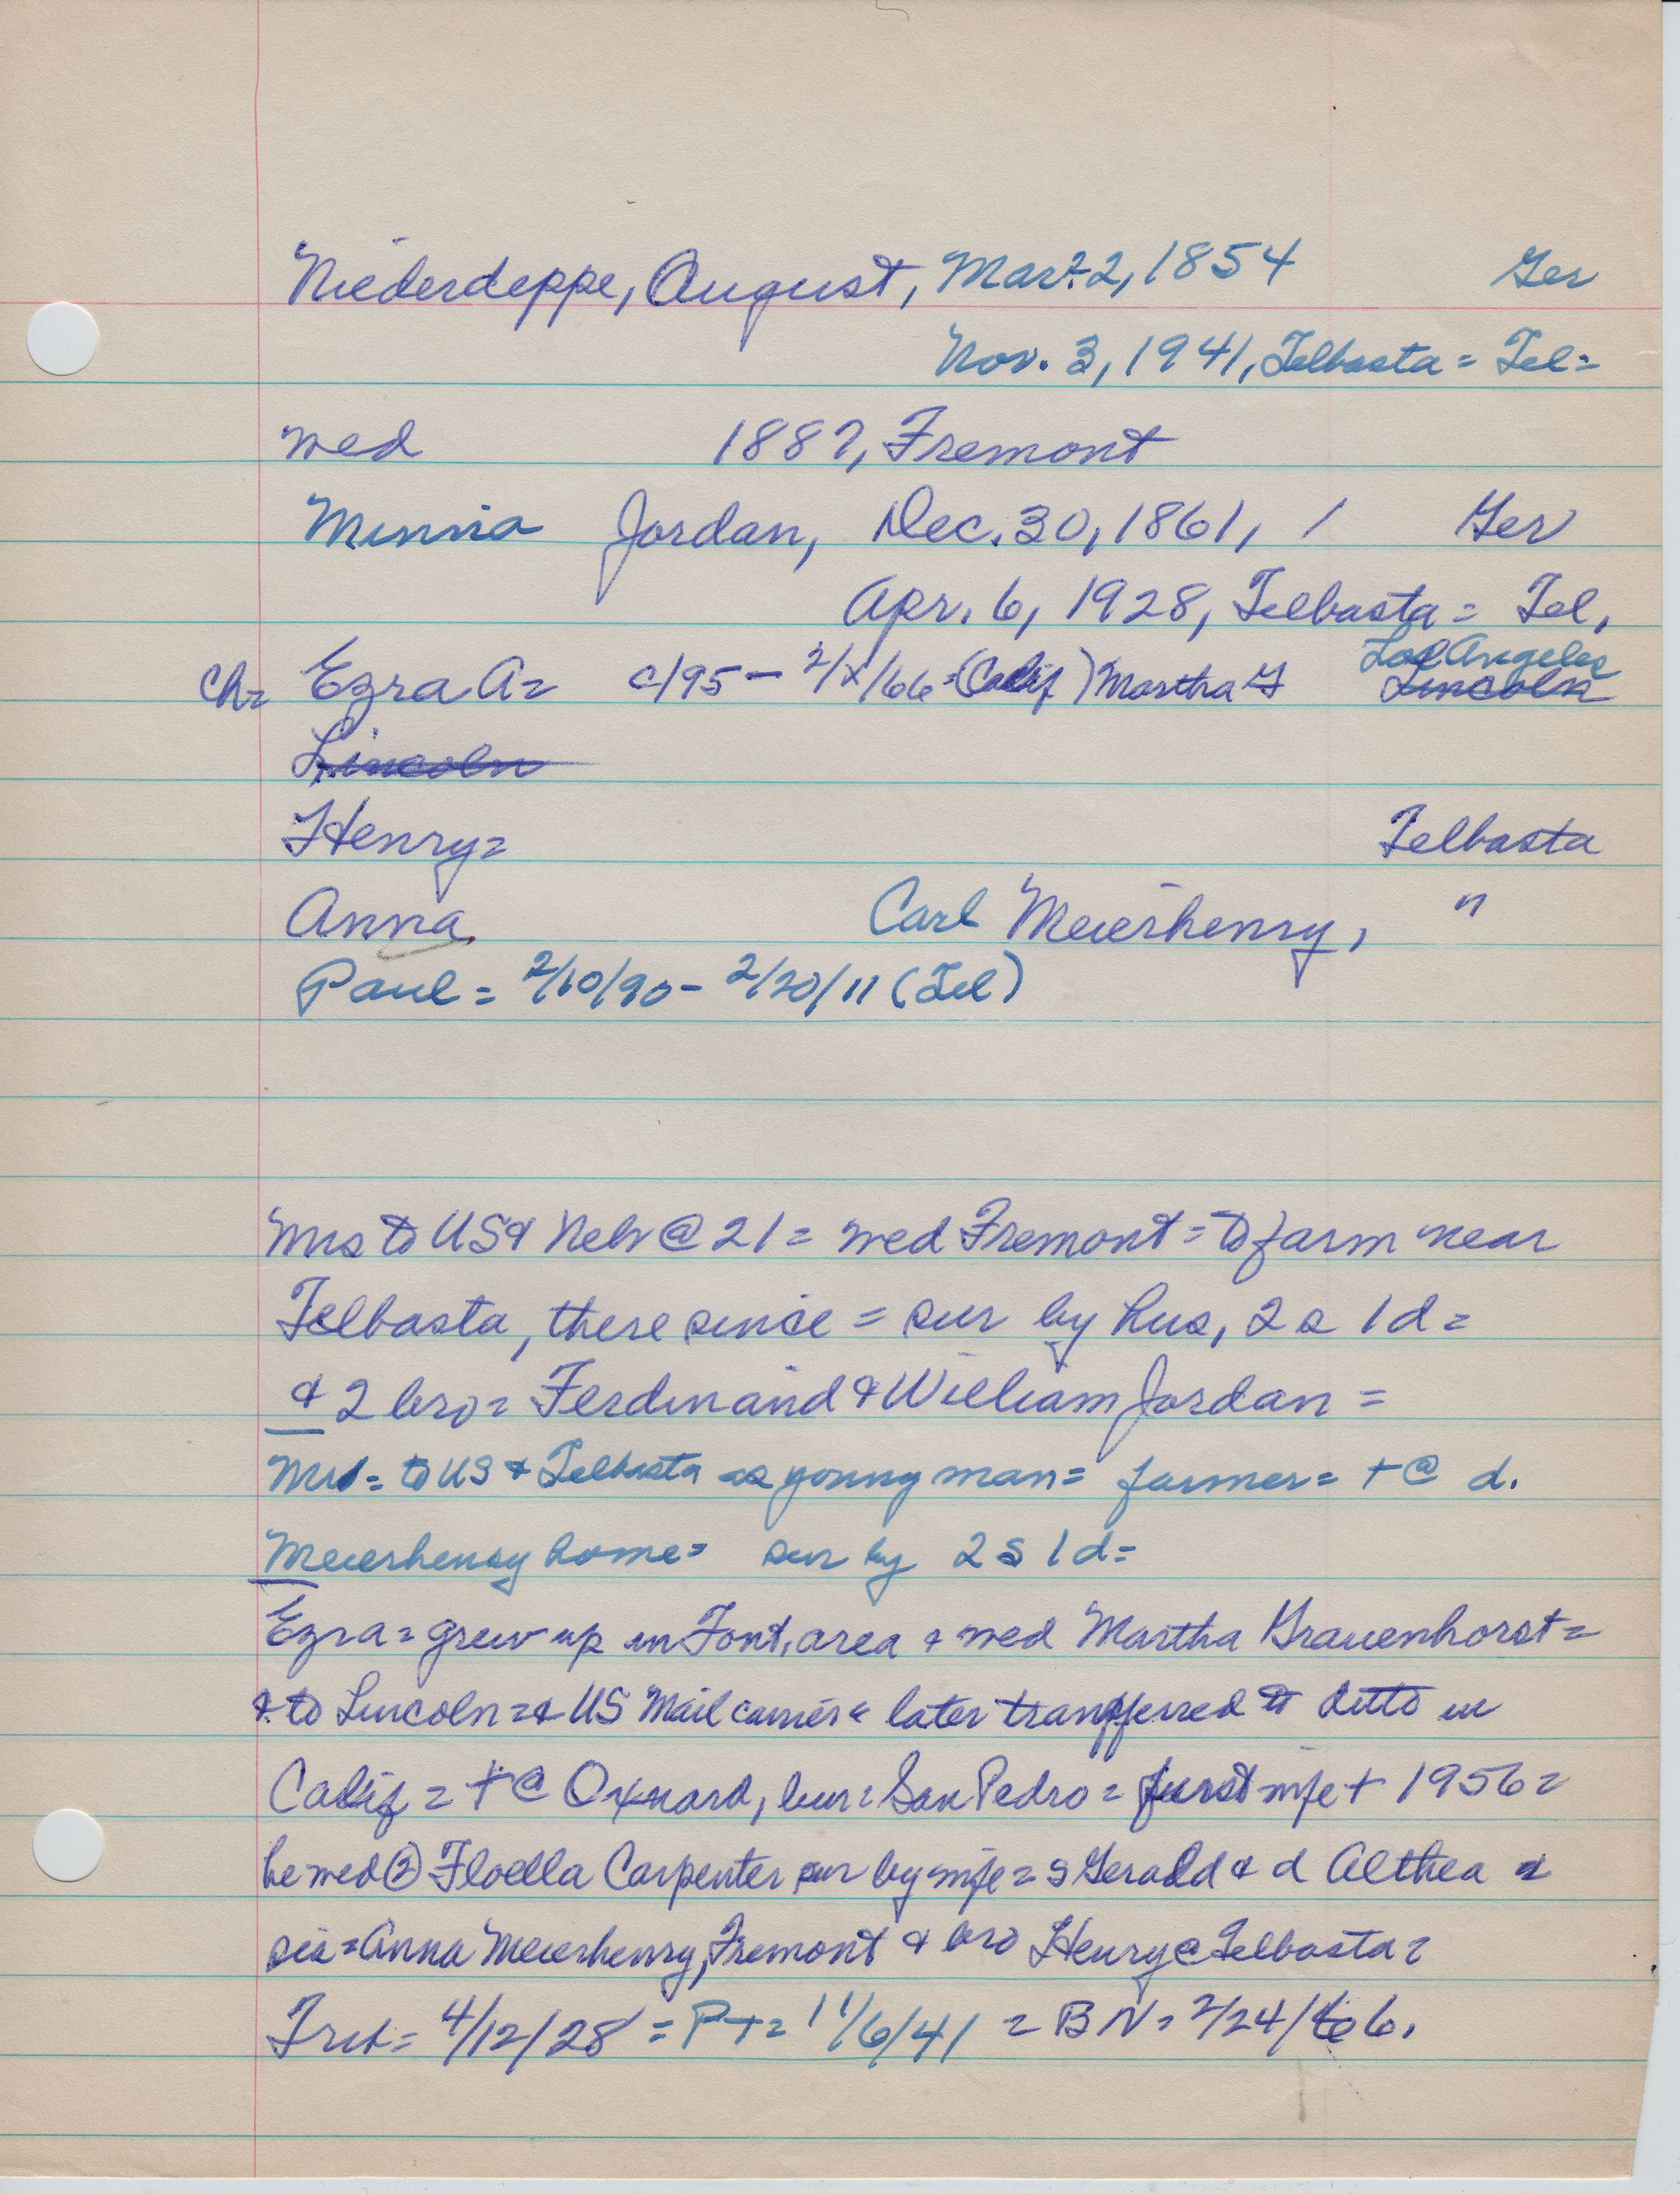 Niederdeppe, August, Mar. 22, 1854 Ger
Nov. 3, 1941, Telbasta = Tel =
wed 188?, Fremont
Minnia Jordan, Dec. 30, 1861, / Ger
Apr. 6, 1928, Telbasta = Tel,
Los Angeles
Ch= Ezra A= c/95 - 2/x/66 = (Calif) Martha G Lincoln
Lincoln
Henry= Telbasta
Anna Carl Meierhenry, "
Paul = 2/10/90 - 2/20/11 (Tel)
Mrs to US & Neb @ 21 = wed Fremont = to farm near
Telbasta, there since = sur by hus, 2 s 1 d =
& 2 bro = Ferdinand & William Jordan =
= to US & Telbasta as young man = farmer = + @ d.
Meierhenry home = sur by 2 s 1 d =
Ezra = grew up in Font. area & wed Martha Grauenhorst =
& to Lincoln = & US Mail carrier & later transferred to ditto in
Calif = + @ Oxnard, bur = San Pedro = first wife + 1956 =
he wed ② Floella Carpenter sur by wife = s Gerald & d Althea &
sis = Anna Meierhenry, Fremont & bro Henry @ Telbasta =
= 4/12/28 = PT = 11/6/41 = BN = 2/24/66.